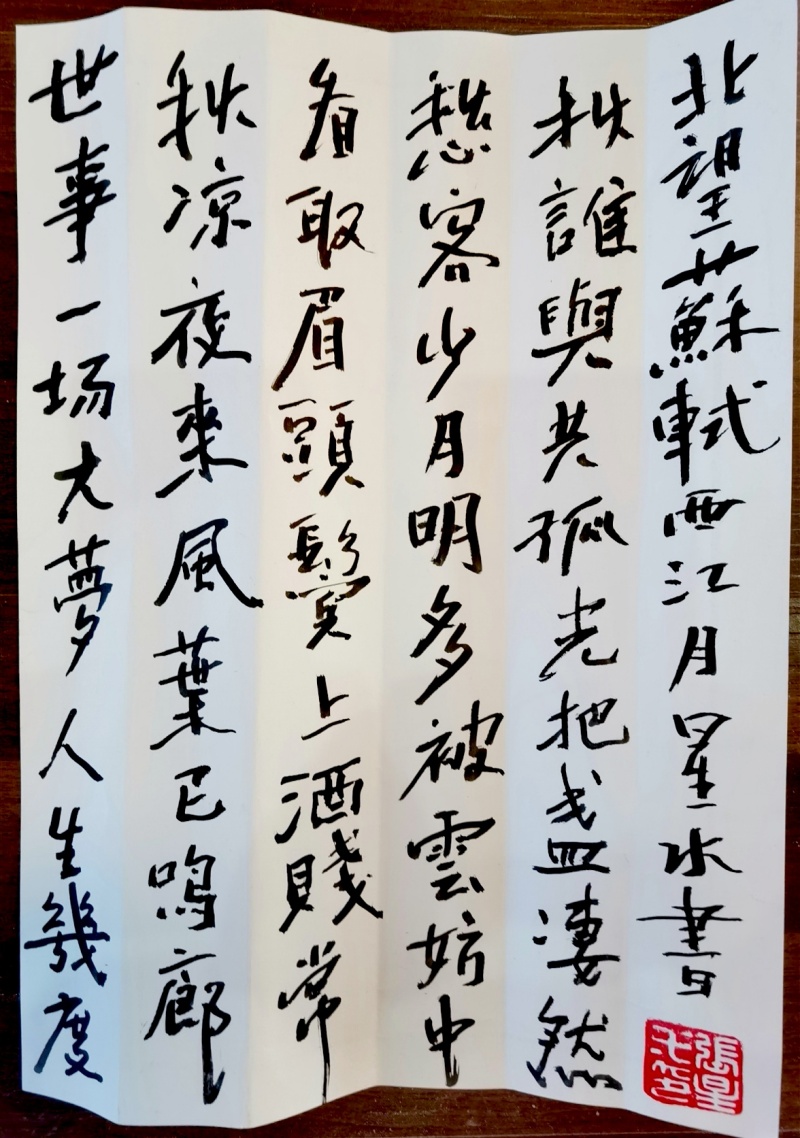 世事一场大夢人生幾度
秋凉夜來風葉已鳴廊
看取眉頭鬢上酒賤常
愁客少月明多被雲妨中
秋誰與共孤光把盏淒然
北望蘇軾西江月星水書
張星